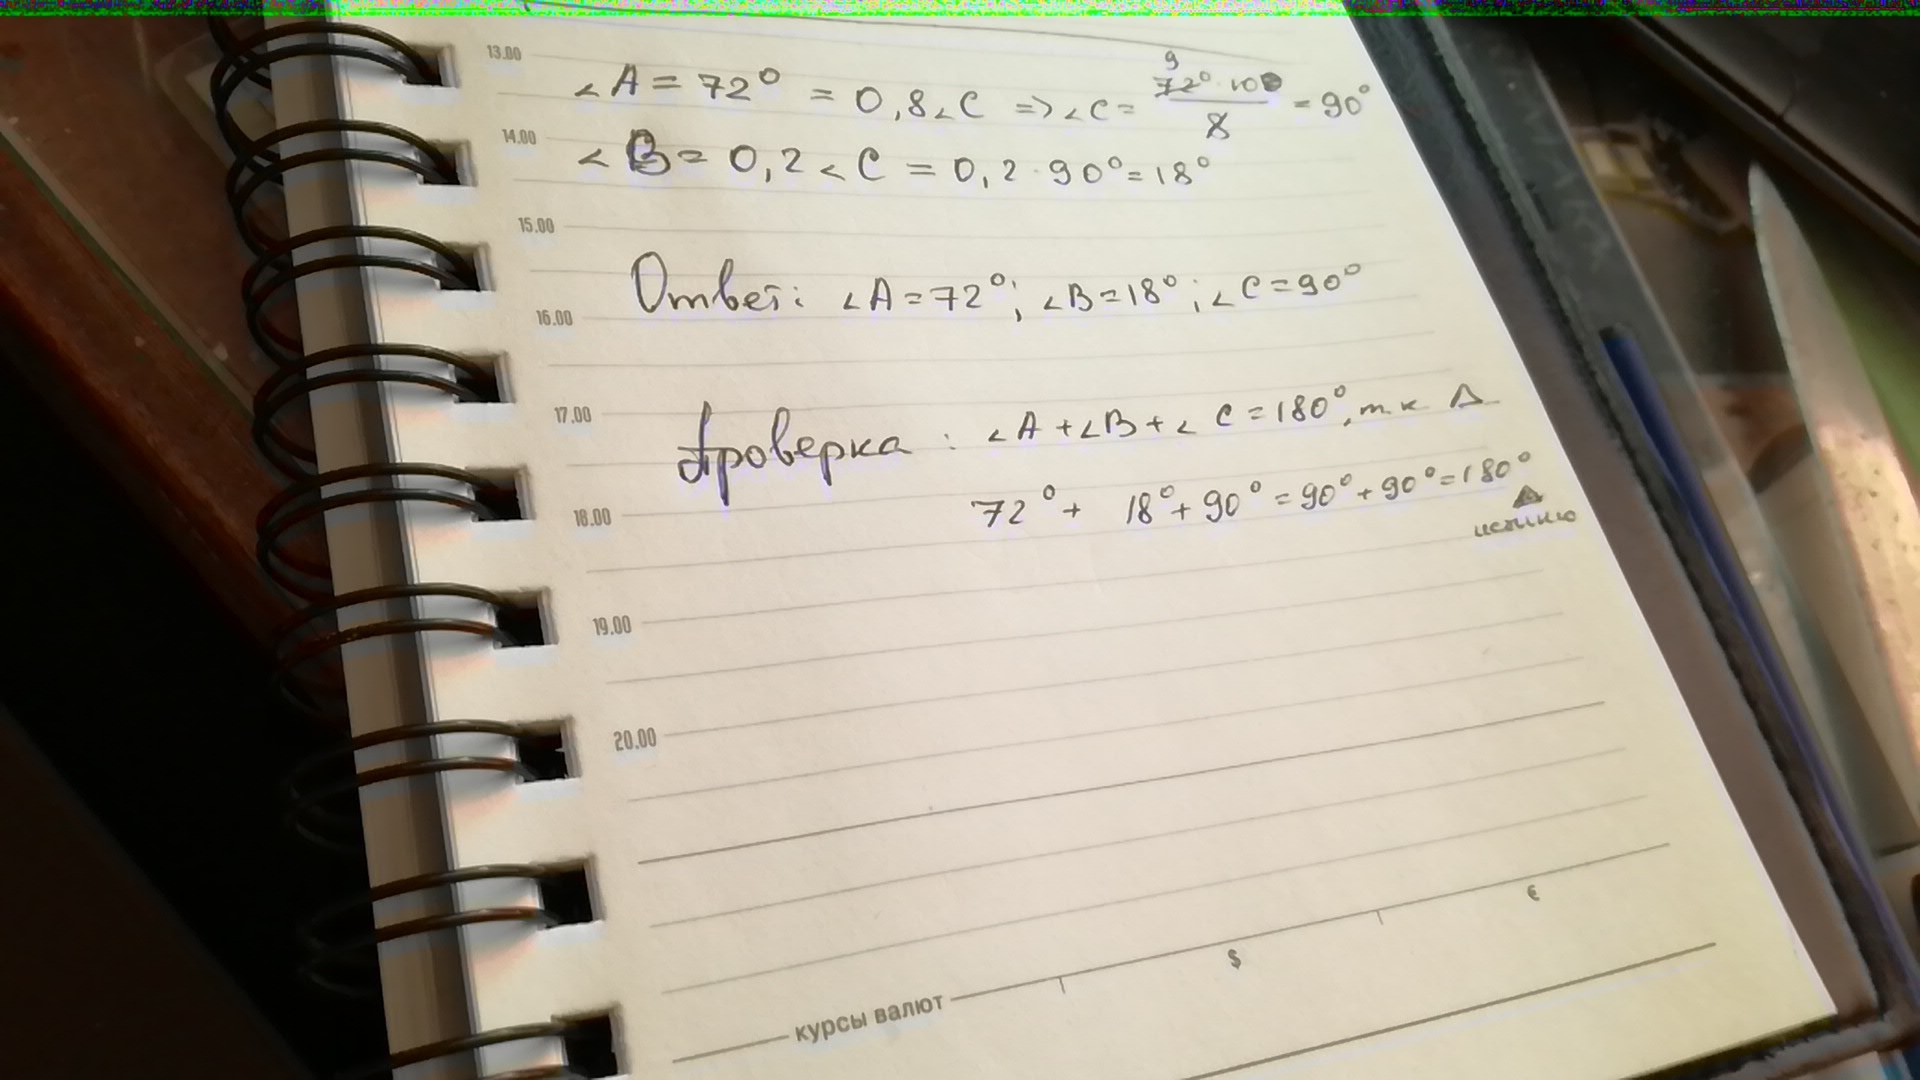 13.00
∠A = 72° = 0,8∠C => ∠C = 9 72°·10 / 8 = 90°
14.00
∠B = 0,2∠C = 0,2·90° = 18°
15.00
Ответ: ∠A = 72°; ∠B = 18°; ∠C = 90°
16.00
17.00
Проверка: ∠A + ∠B + ∠C = 180°, т.к Δ
72° + 18° + 90° = 90° + 90° = 180°
18.00
19.00
20.00
€
$
курсы валют